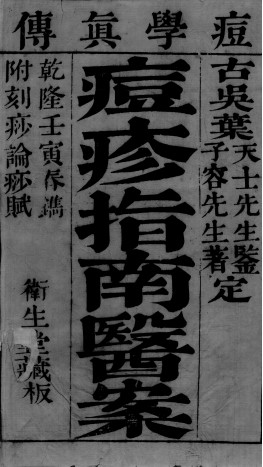 痘學眞傳
古吳葉天士先生鑒定
子容先生著
痘疹指南醫案
乾隆壬寅春鐫
附刻痧論痧賦
衛生堂藏板